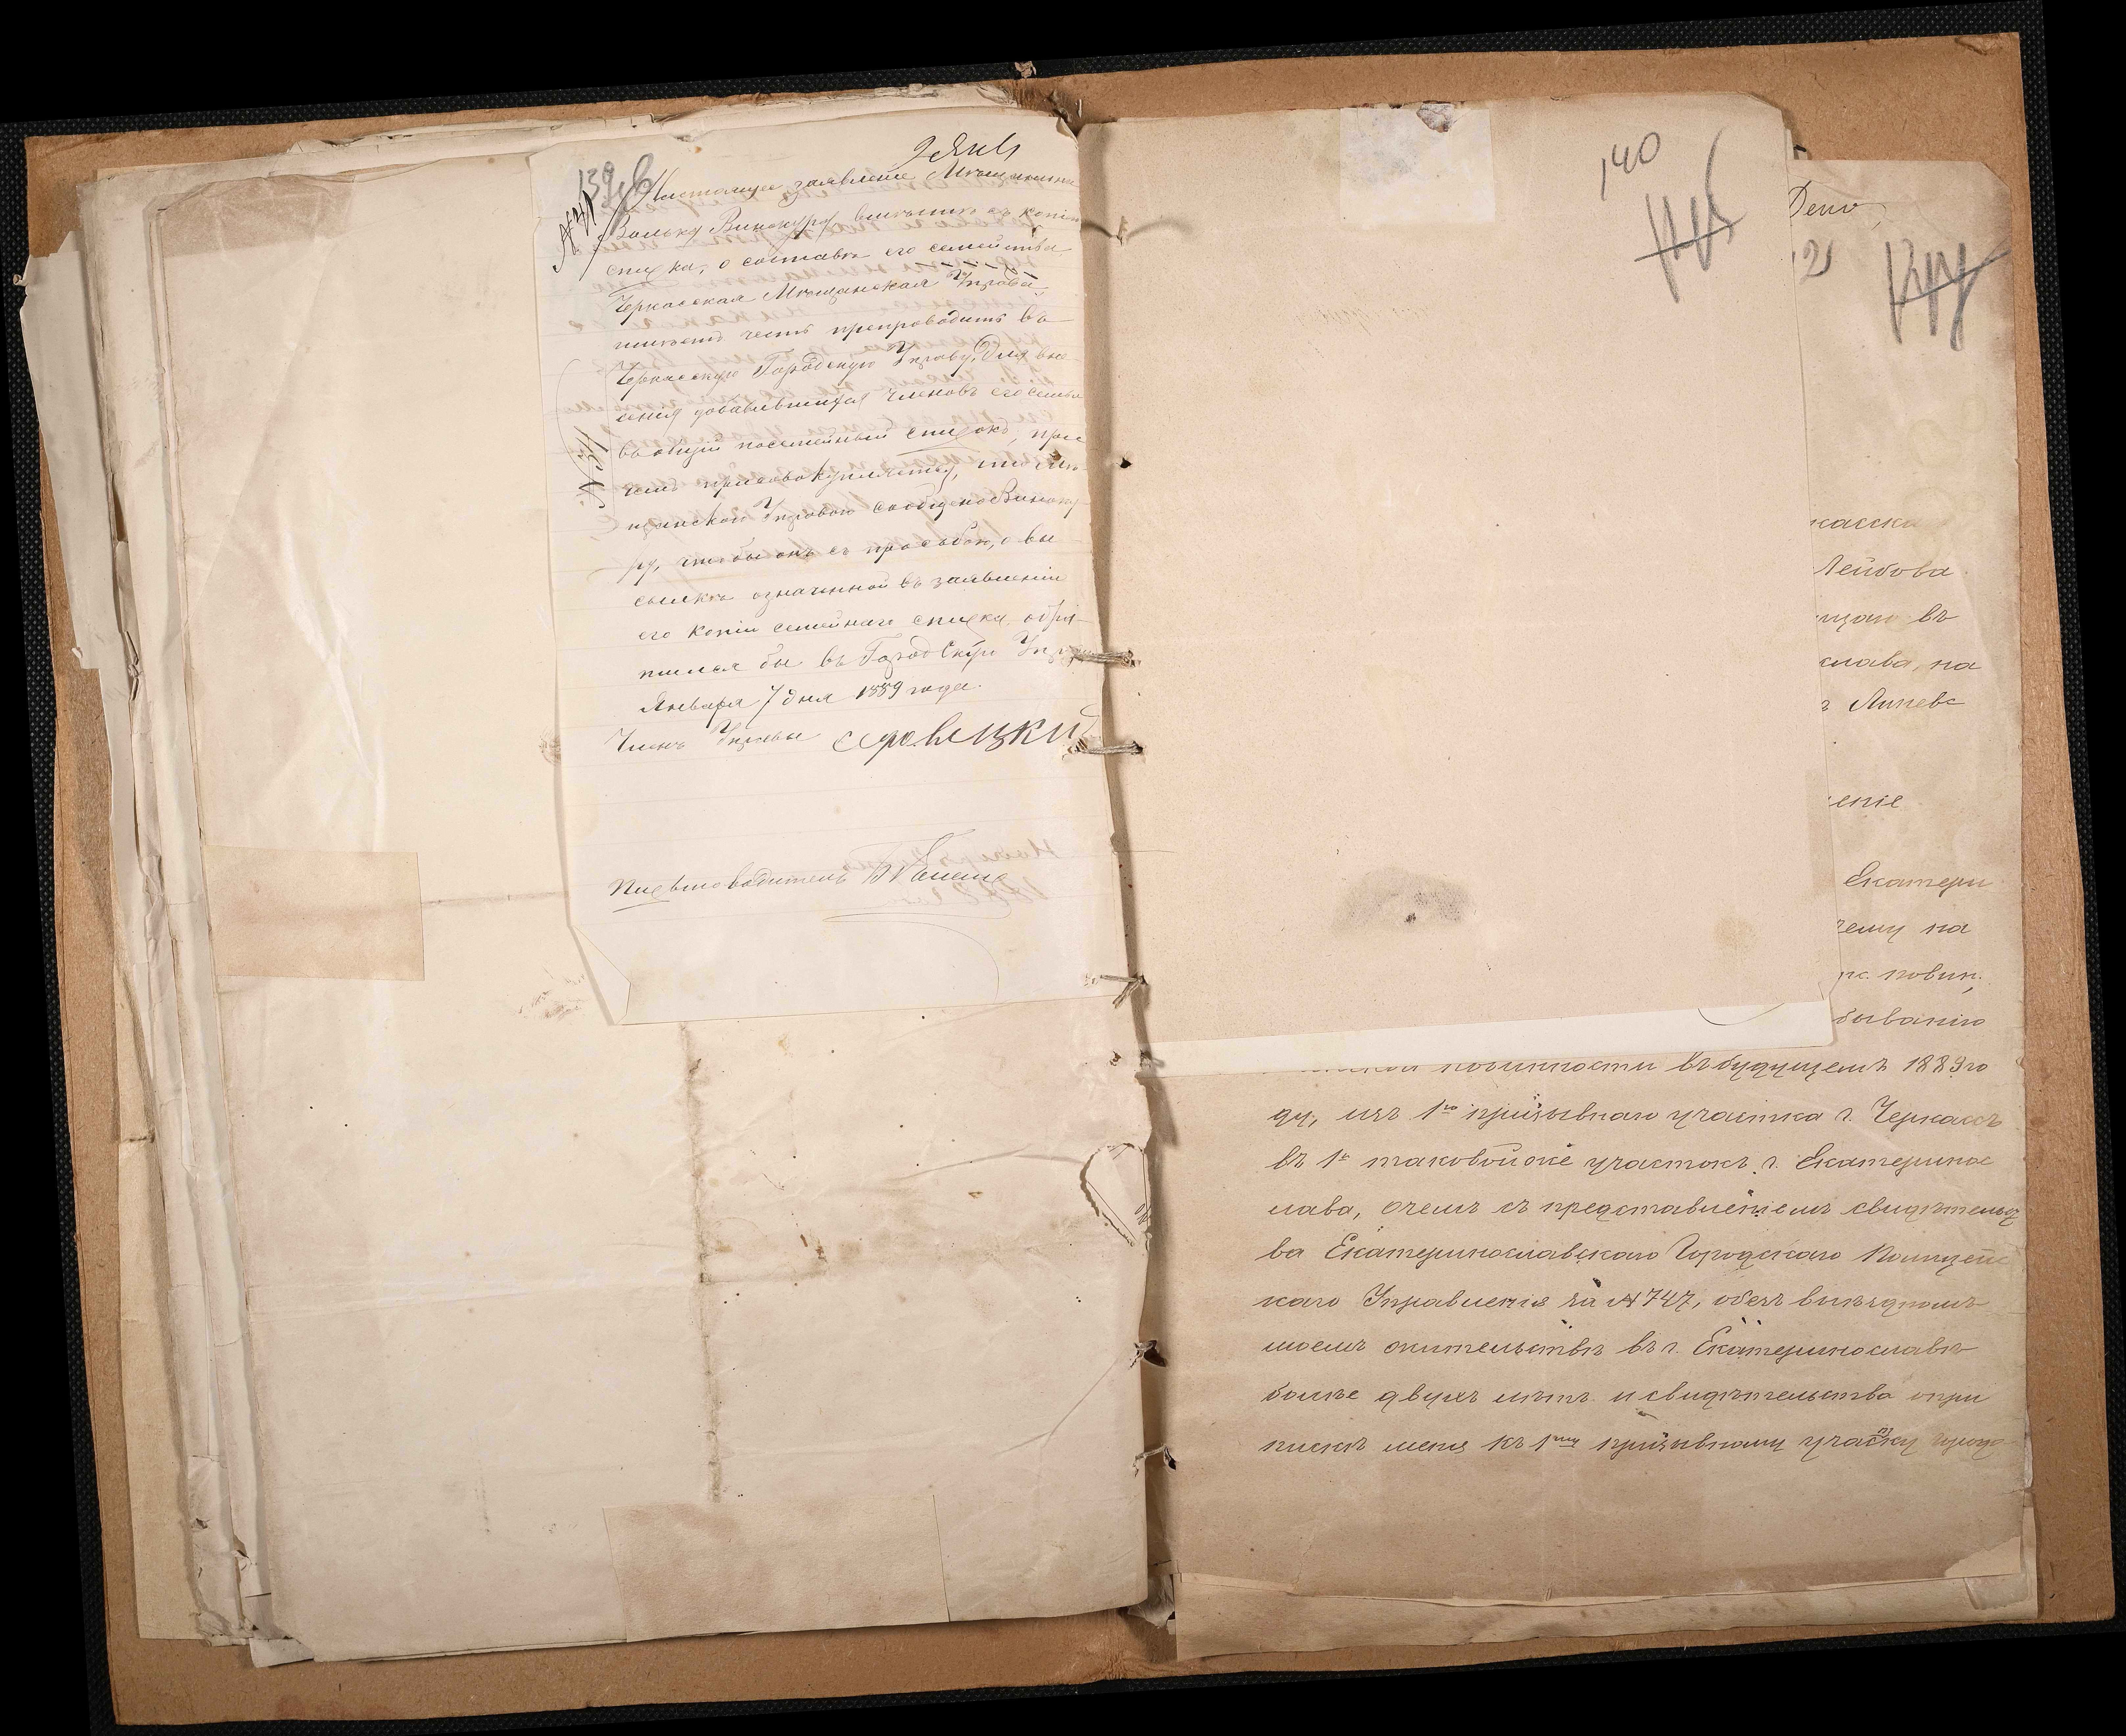 9 Янв
139об
Настоящее заявление Мещанина
Вольки Винокура вместе съ копіею
списка, о составѣ его семейства
Черкасская Мѣщанская Управа
имѣетъ честь препроводить въ
Черкасскую Городскую Управу, для вне
сенія добавившихся членовъ его семьи
въ общій посемейный списокъ, при
чемъ присовокупляетъ, что Мѣ-
щанской Управою сообщено Виноку
ру, чтобы онъ съ просьбою, о вы
сылкѣ означенной въ заявленіи
его копіи семейнаго списка, обра-
тился бы въ Городскую Управу
Января 7 дня 1889 года.
Членъ Управы
Письмоводитель
№ 31
140
Дело
касска
Лейбова
щаго въ
слава, на
Липевс
еніе
Екатери
чему на
повин.
быванію
повинности въ будущемъ 1889 го
ду, изъ 1го призывнаго участка г. Черкассъ
въ 1й таковой же участокъ г. Екатеринос
лава, о чемъ съ представленіемъ свидѣтельст
ва Екатеринославскаго Городскаго Полицейс
каго Управленія за № 747, о безвыѣздномъ
моемъ жительствѣ въ г. Екатеринославѣ
болѣе двухъ лѣтъ и свидѣтельства о при
пискѣ меня къ 1му призывному участку города